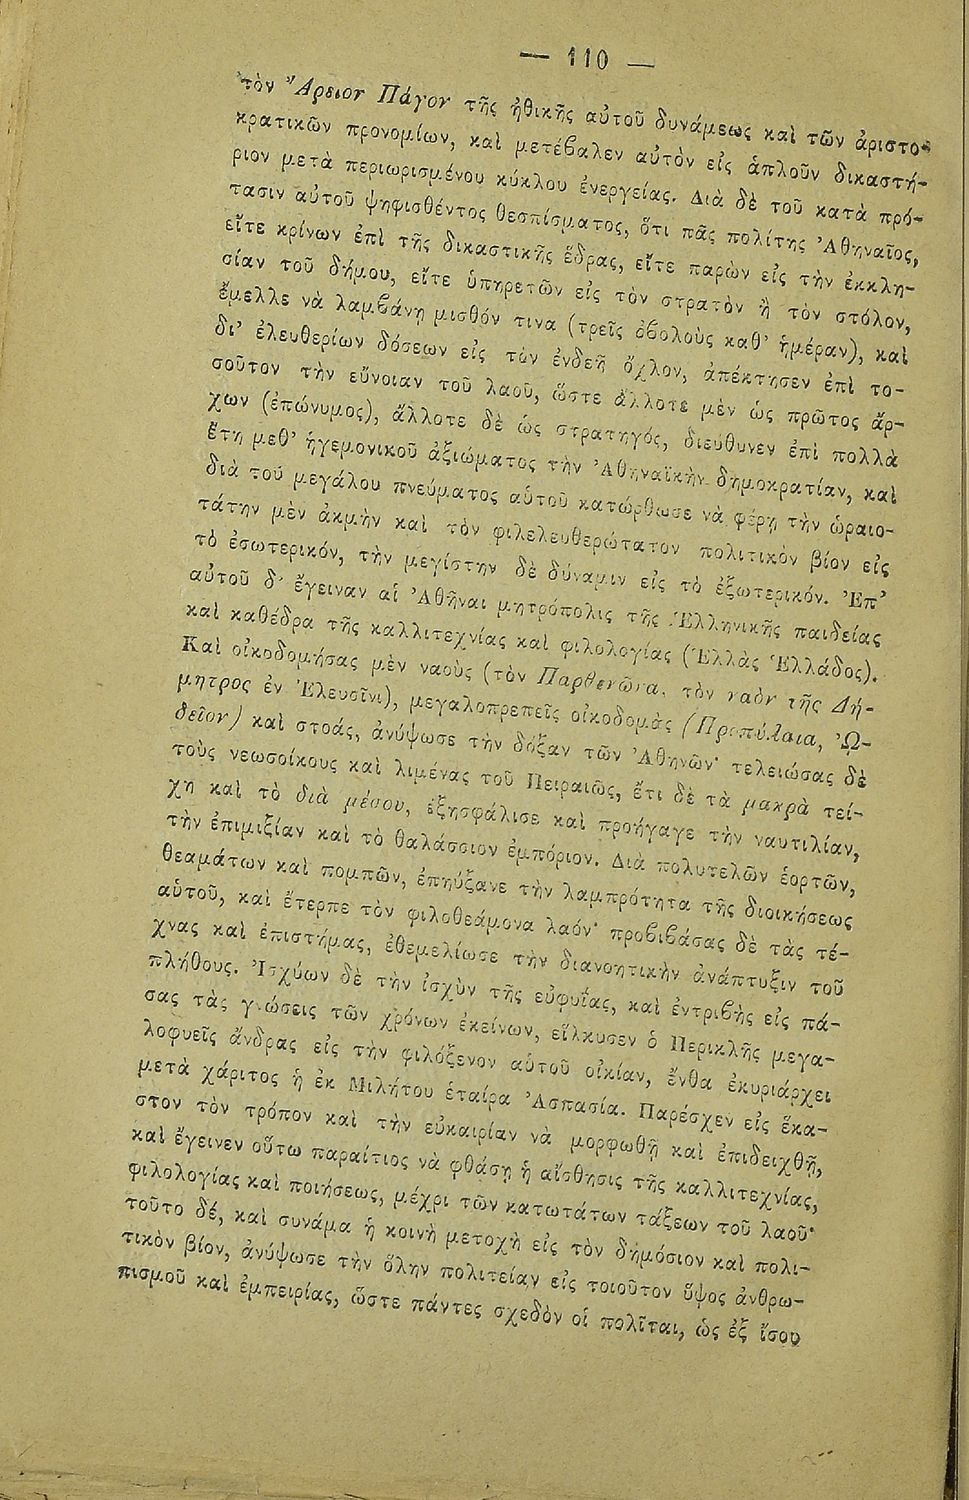 — 110 —
τὸν Ἄρειον Πάγον τῆς ἠθικῆς αὐτοῦ δυνάμεως καὶ τῶν ἀριστο-
κρατικῶν προνομίων, καὶ μετέβαλεν αὐτὸν εἰς ἁπλοῦν δικαστή-
ριον μετὰ περιωρισμένου κύκλου ἐνεργείας. Διὰ δὲ τοῦ κατὰ πρό-
τασιν αὐτοῦ ψηφισθέντος θεσπίσματος, ὅτι πᾶς πολίτης Ἀθηναῖος,
εἴτε κρίνων ἐπὶ τῆς δικαστικῆς ἕδρας, εἴτε παρὼν εἰς τὴν ἐκκλη-
σίαν τοῦ δήμου, εἴτε ὑπηρετῶν εἰς τὸν στρατὸν ἢ τὸν στόλον,
ἔμελλε νὰ λαμβάνῃ μισθόν τινα (τρεῖς ὀβολοὺς καθ' ἡμέραν), καὶ
δι' ἐλευθερίων δόσεων εἰς τὸν ἐνδεῆ ὄχλον, ἀπέκτησεν ἐπὶ το-
σοῦτον τὴν εὔνοιαν τοῦ λαοῦ, ὥστε ἄλλοτε μὲν ὡς πρῶτος ἄρ-
χων (ἐπώνυμος), ἄλλοτε δὲ ὡς στρατηγός, διεύθυνεν ἐπὶ πολλὰ
ἔτη μεθ' ἡγεμονικοῦ ἀξιώματος τὴν Ἀθηναϊκὴν δημοκρατίαν, καὶ
διὰ τοῦ μεγάλου πνεύματος αὑτοῦ κατώρθωσε νὰ φέρῃ τὴν ὡραιο-
τάτην μὲν ἀκμὴν καὶ τὸν φιλελευθερώτατον πολιτικὸν βίον εἰς
τὸ ἐσωτερικόν, τὴν μεγίστην δὲ δύναμιν εἰς τὸ ἐξωτερικόν. Ἐπ'
αὐτοῦ δ' ἔγειναν αἱ Ἀθῆναι μητρόπολις τῆς Ἑλληνικῆς παιδείας
καὶ καθέδρα τῆς καλλιτεχνίας καὶ φιλολογίας (Ἑλλὰς Ἑλλάδος).
Καὶ οἰκοδομήσας μὲν ναοὺς (τὸν Παρθενῶνα, τὸν ναὸν τῆς Δή-
μητρος ἐν Ἐλευσῖνι), μεγαλοπρεπεῖς οἰκοδομὰς (Προπύλαια, Ὠ-
δεῖον) καὶ στοάς, ἀνύψωσε τὴν δόξαν τῶν Ἀθηνῶν· τελειώσας δὲ
τοὺς νεωσοίκους καὶ λιμένας τοῦ Πειραιῶς, ἔτι δὲ τὰ μακρὰ τεί-
χη καὶ τὸ διὰ μέσου, ἐξησφάλισε καὶ προήγαγε τὴν ναυτιλίαν,
τὴν ἐπιμιξίαν καὶ τὸ θαλάσσιον ἐμπόριον. Διὰ πολυτελῶν ἑορτῶν,
θεαμάτων καὶ πομπῶν, ἐπηύξανε τὴν λαμπρότητα τῆς διοικήσεως
αὑτοῦ, καὶ ἔτερπε τὸν φιλοθεάμονα λαόν· προβιβάσας δὲ τὰς τέ-
χνας καὶ ἐπιστήμας, ἐθεμελίωσε τὴν διανοητικὴν ἀνάπτυξιν τοῦ
πλήθους. Ἰσχύων δὲ τὴν ἰσχὺν τῆς εὐφυΐας, καὶ ἐντριβὴς εἰς πά-
σας τὰς γνώσεις τῶν χρόνων ἐκείνων, εἵλκυσεν ὁ Περικλῆς μεγα-
λοφυεῖς ἄνδρας εἰς τὴν φιλόξενον αὑτοῦ οἰκίαν, ἔνθα ἐκυριάρχει
μετὰ χάριτος ἡ ἐκ Μιλήτου ἑταίρα Ἀσπασία. Παρέσχεν εἰς ἕκα-
στον τὸν τρόπον καὶ τὴν εὐκαιρίαν νὰ μορφωθῇ καὶ ἐπιδειχθῇ,
καὶ ἔγεινεν οὕτω παραίτιος νὰ φθάσῃ ἡ αἴσθησις τῆς καλλιτεχνίας,
φιλολογίας καὶ ποιήσεως, μέχρι τῶν κατωτάτων τάξεων τοῦ λαοῦ·
τοῦτο δέ, καὶ συνάμα ἡ κοινὴ μετοχὴ εἰς τὸν δημόσιον καὶ πολι-
τικὸν βίον, ἀνύψωσε τὴν ὅλην πολιτείαν εἰς τοιοῦτον ὕψος ἀνθρω-
πισμοῦ καὶ ἐμπειρίας, ὥστε πάντες σχεδὸν οἱ πολῖται, ὡς ἐξ ἴσου